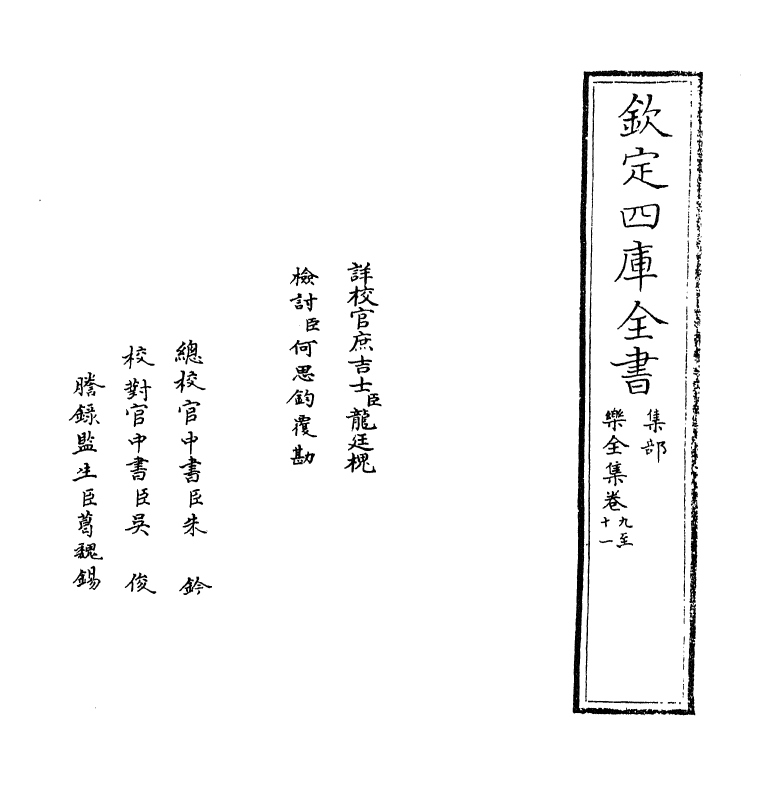 欽定四庫全書
集部
樂全集卷九至十一
詳校官庶吉士臣龍廷槐
檢討臣何思鈞覆勘
總校官中書臣朱鈐
校對官中書臣吳俊
謄錄監生臣葛魏錫